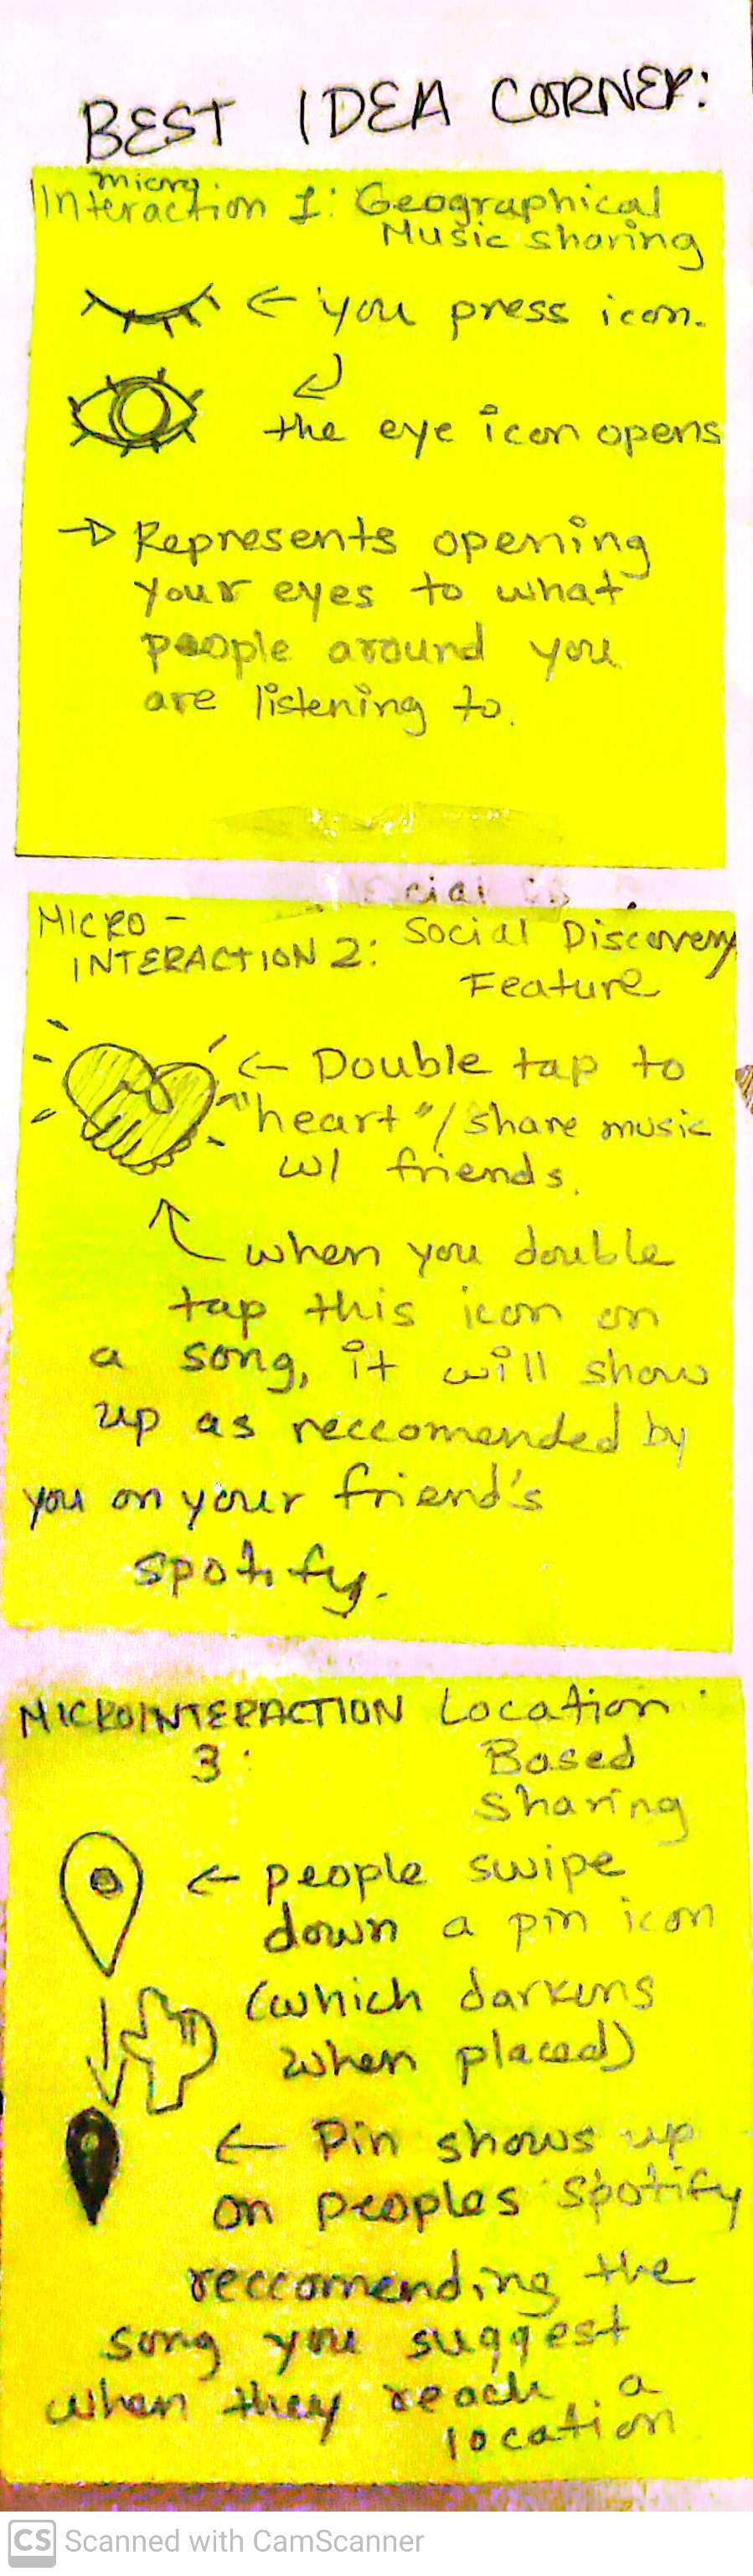 BEST IDEA CORNER:
micro
Interaction 1: Geographical
Music sharing
← you press icon.
the eye icon opens
→ Represents opening
your eyes to what
people around you
are listening to.
cial
MICRO-
INTERACTION 2: Social Discovery
Feature
← Double tap to
"heart"/share music
w/ friends.
when you double
tap this icon on
a song, it will show
up as reccomended by
you on your friend's
spotify.
MICROINTERACTION Location
3: Based
Sharing
← people swipe
down a pin icon
(which darkens
when placed)
← Pin shows up
on peoples spotify
reccomending the
song you suggest
when they reach a
location
CS Scanned with CamScanner